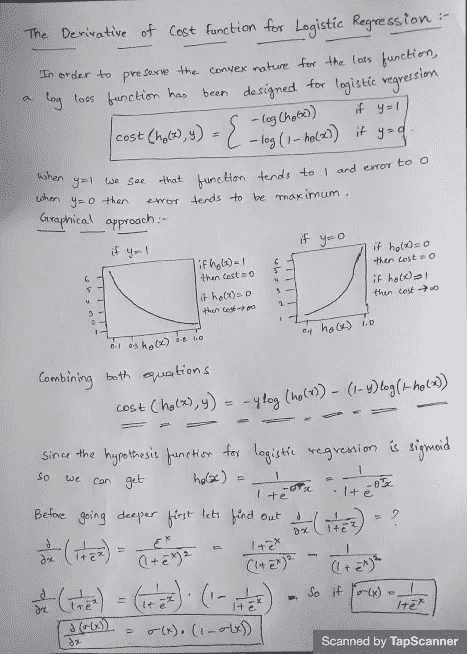 The Derivative of Cost function for Logistic Regression :-
In order to preserve the convex nature for the loss function,
a log loss function has been designed for logistic regression
cost (hθ(x), y) = { -log(hθ(x)) if y=1
-log(1-hθ(x)) if y=0
when y=1 we see that function tends to 1 and error to 0
when y=0 then error tends to be maximum.
Graphical approach :-
if y=1
6
5
4
3
2
1
0.1 0.5 hθ(x) 0.8 1.0
if hθ(x)=1
then cost=0
if hθ(x)=0
then cost→∞
if y=0
6
5
4
3
2
1
0.1 hθ(x) 1.0
if hθ(x)=0
then cost=0
if hθ(x)=1
then cost→∞
Combining both equations
cost (hθ(x), y) = -y log (hθ(x)) - (1-y) log(1-hθ(x))
Since the hypothesis function for logistic regression is sigmoid
So we can get hθ(x) = 1/(1+e^-θᵀx) = 1/(1+e^-θᵀx)
Before going deeper first lets find out ∂/∂x (1/(1+e^-x)) = ?
∂/∂x (1/(1+e^-x)) = e^-x/(1+e^-x)² = 1+e^-x/(1+e^-x)² - 1/(1+e^-x)²
∂/∂x (1/(1+e^-x)) = (1/(1+e^-x)) · (1 - 1/(1+e^-x)) - So if σ(x) = 1/(1+e^-x)
∂(σ(x))/∂x = σ(x).(1-σ(x))
Scanned by TapScanner